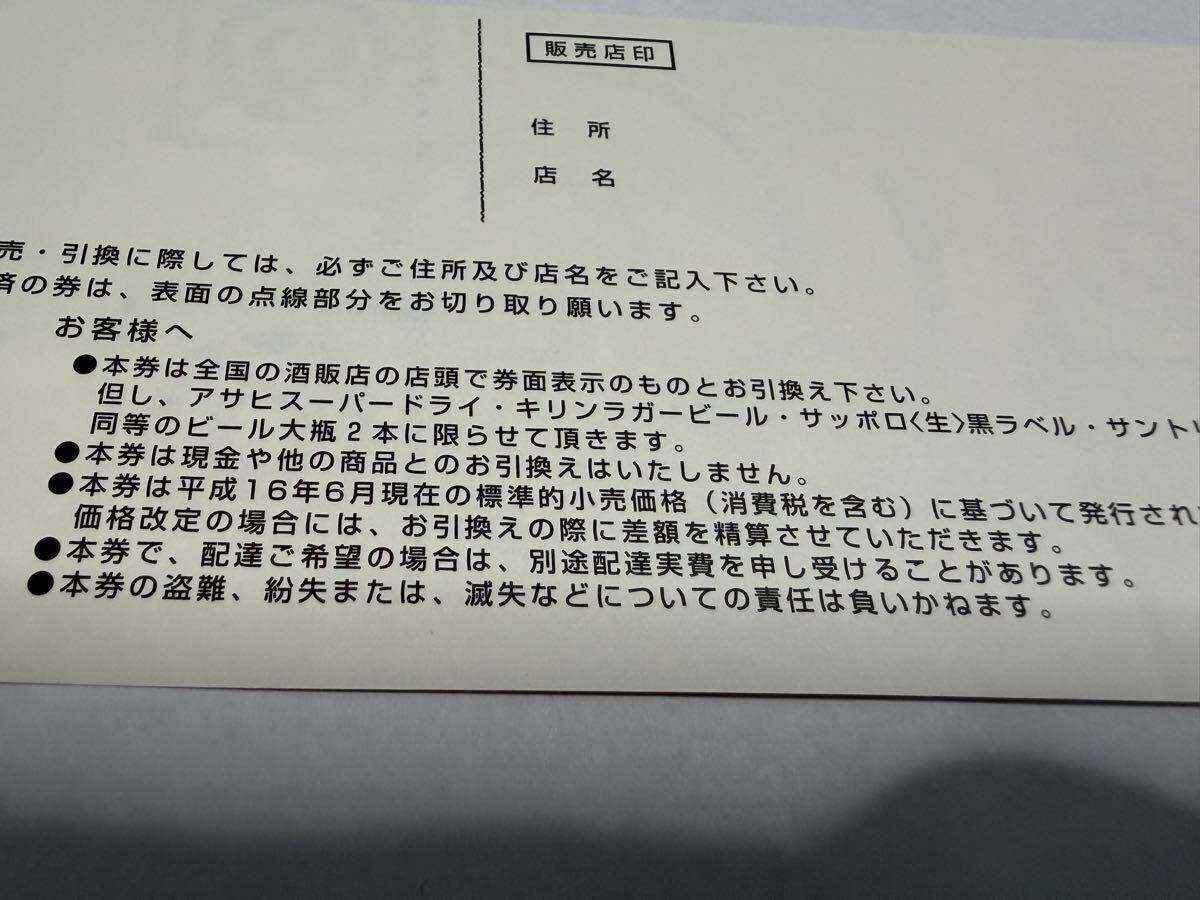 販売店印
住 所
店 名
売・引換に際しては、必ずご住所及び店名をご記入下さい。
済の券は、表面の点線部分をお切り取り願います。
お客様へ
●本券は全国の酒販店の店頭で券面表示のものとお引換え下さい。
但し、アサヒスーパードライ・キリンラガービール・サッポロ〈生〉黒ラベル・サント
同等のビール大瓶2本に限らせて頂きます。
●本券は現金や他の商品とのお引換えはいたしません。
●本券は平成16年6月現在の標準的小売価格(消費税を含む)に基づいて発行され
価格改定の場合には、お引換えの際に差額を精算させていただきます。
●本券で、配達ご希望の場合は、別途配達実費を申し受けることがあります。
●本券の盗難、紛失または、滅失などについての責任は負いかねます。